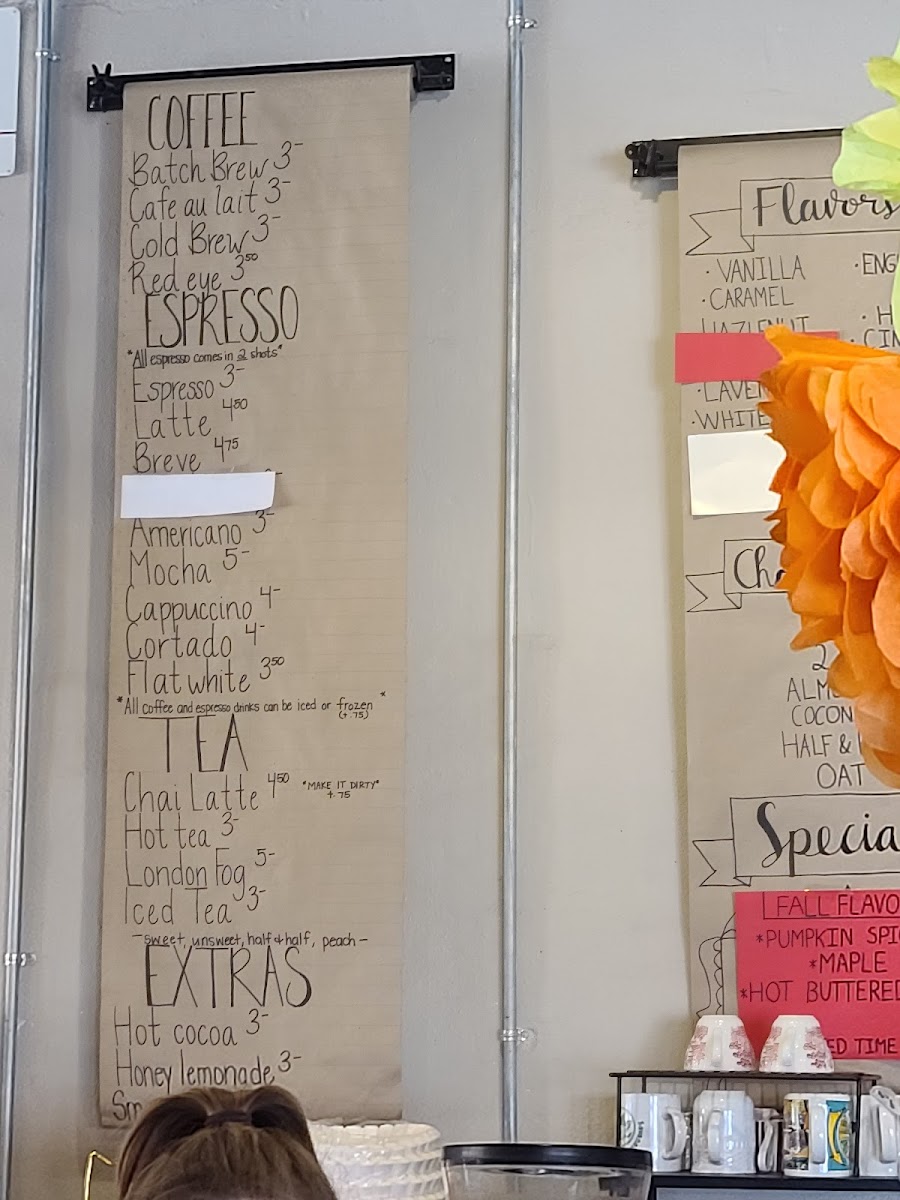 COFFEE
Batch Brew 3-
Cafe au lait 3-
Cold Brew 3-
Red eye 3 50
ESPRESSO
*All espresso comes in 2 shots*
Espresso 3-
Latte 4 50
Breve 4 75
Americano 3-
Mocha 5-
Cappuccino 4-
Cortado 4-
Flat white 3 50
*All coffee and espresso drinks can be iced or frozen *
(+.75)
TEA
Chai Latte 4 50 *MAKE IT DIRTY*
+.75
Hot tea 3-
London Fog 5-
Iced Tea 3-
-sweet, unsweet, half & half, peach-
EXTRAS
Hot cocoa 3-
Honey lemonade 3-
Sm
Flavors
· VANILLA
· CARAMEL
HAZLENUT
· LAVEN
· WHITE
· ENG
· H
· CIN
Ch
2
ALM
COCON
HALF &
OAT
Specia
FALL FLAVO
*PUMPKIN SPI
*MAPLE
*HOT BUTTERED
ED TIME